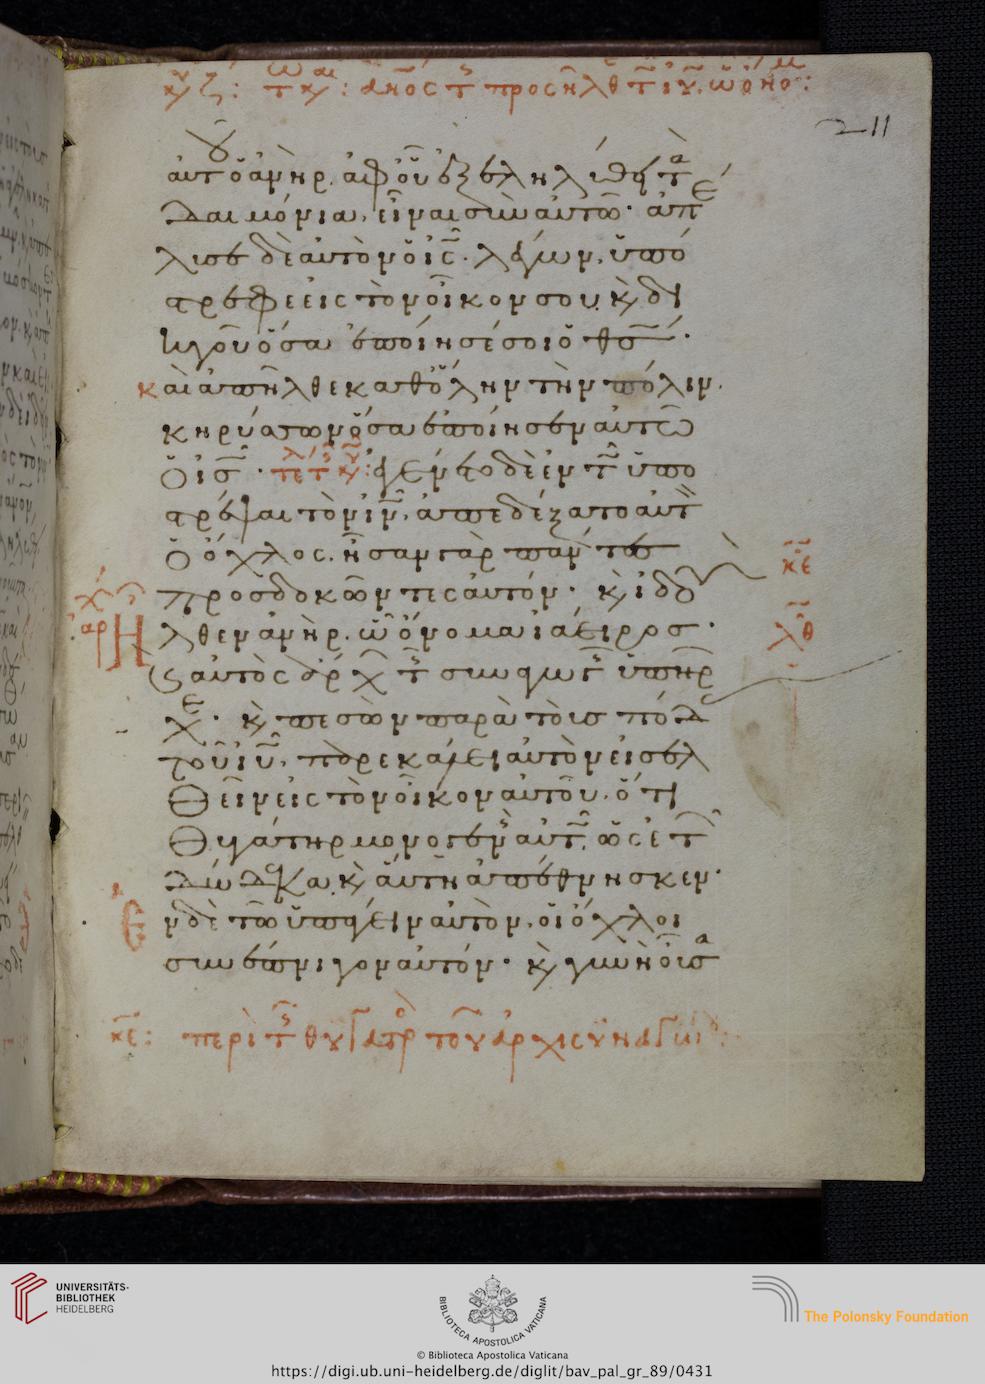 κυ ζ: τ κ: ανος τ προσηλθ τ ιυ, ω ονο:
211
αυτου ο ανηρ. αφ ου εξεληλυθει τα
δαιμονια, ειναι συν αυτω· απε
λυσε δε αυτον ο ις· λεγων, υπο
στρεφε εις τον οικον σου, κ δι
ηγου οσα εποιησε σοι ο θς·
και απηλθε καθ ολην την πολιν.
κηρυσσων οσα εποιησεν αυτω
ο ις· τε τ κυ: εγενετο δε εν τω υπο
στρεψαι τον ιν, απεδεξατο αυτ
ο οχλος. ησαν γαρ παντες
προσδοκωντες αυτον· κ ιδου
αρχ
ηλθεν ανηρ. ω ονομα ιαειρος·
κε
λθ
κ αυτος αρχ τ συναγωγ υπηρ
χε· κ πεσων παρα τοις ποδ
του ιυ, παρεκαλει αυτον εισελ
θειν εις τον οικον αυτου, οτι
θυγατηρ μονογενης αυτ, ως ετ
δωδεκα, κ αυτη απεθνησκεν·
εν δε τω υπαγειν αυτον, οι οχλοι
συνεπνιγον αυτον· κ γυνη ουσα
κε: περι τ θυγατρ του αρχισυναγω
UNIVERSITÄTS-
BIBLIOTHEK
HEIDELBERG
BIBLIOTECA APOSTOLICA VATICANA
The Polonsky Foundation
© Biblioteca Apostolica Vaticana
https://digi.ub.uni-heidelberg.de/diglit/bav_pal_gr_89/0431